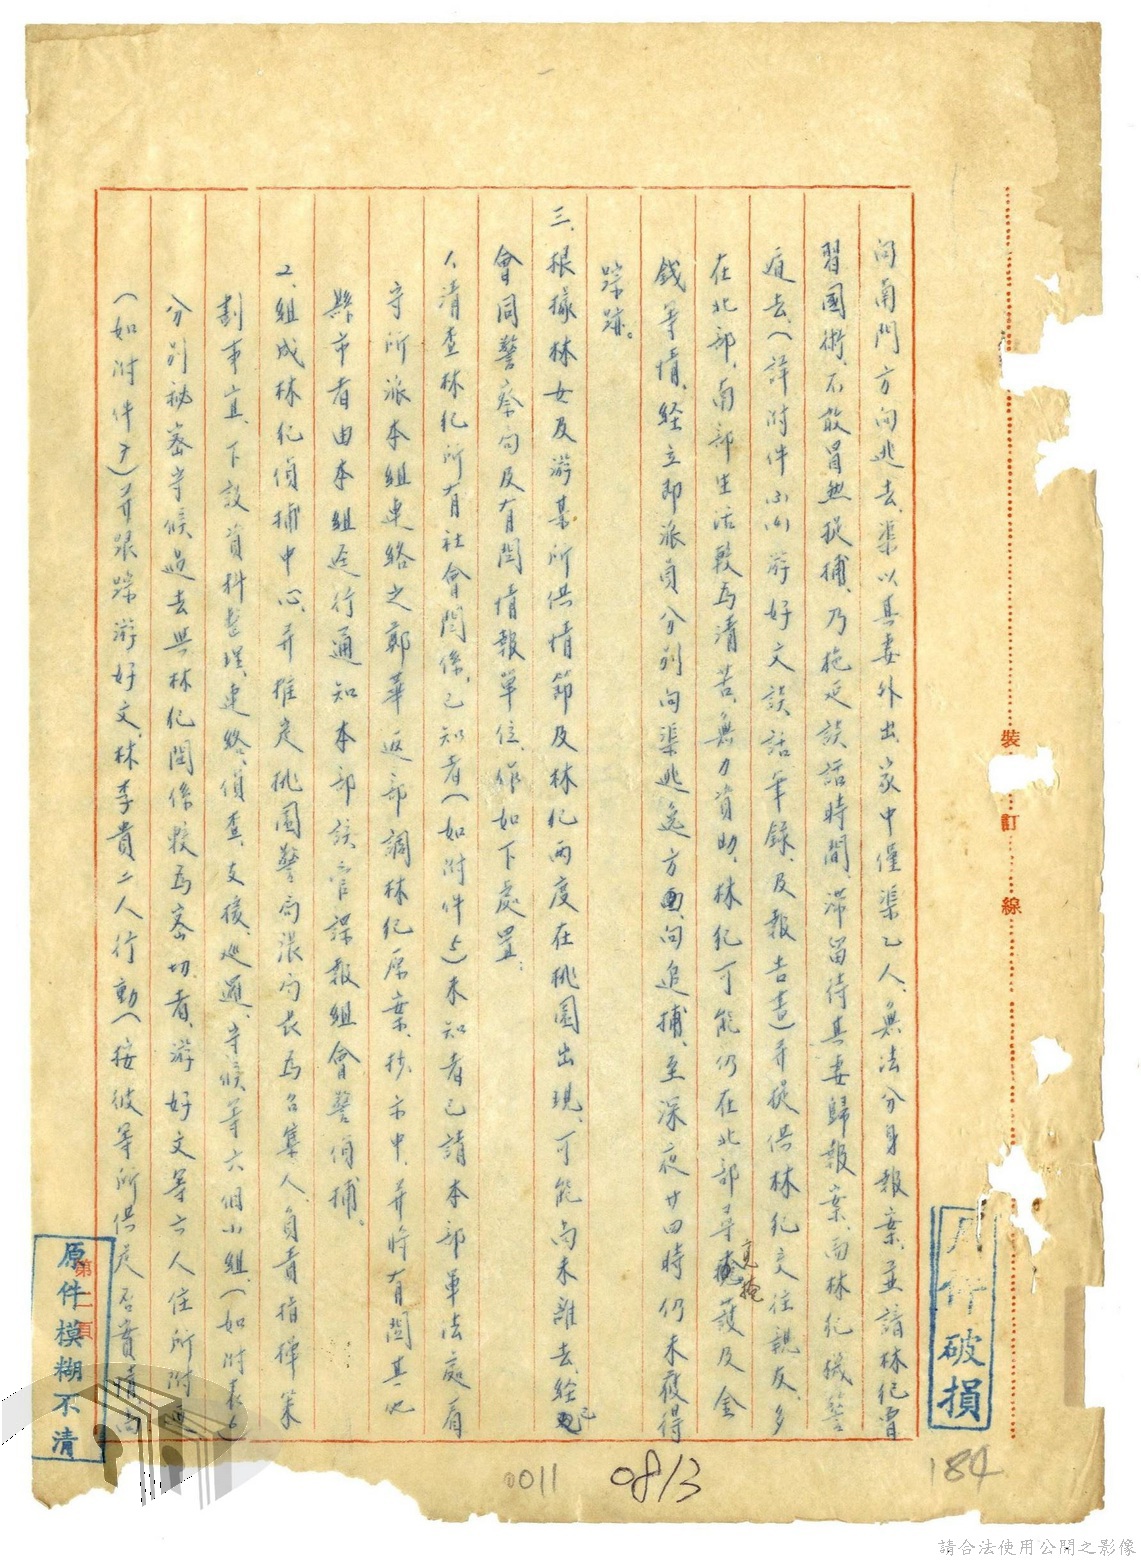 向南門方向逃去、渠以其妻外出、家中僅渠乙人、無法分身報案、並諳林犯曾
習國術、不敢冒然捉捕、乃拖延談話時間、滯留待其妻歸報案、而林犯機警
遁去、(詳附件㈢㈣游好文談話筆錄、及報告書)並提供林犯交往親友、多
在北部、南部生活較為清苦、無力資助、林犯可能仍在北部尋覓掩護及金
錢等情、經立即派員分別向渠逃逸方向追捕、至深夜廿四時仍未獲得
踪跡。
三、根據林女及游某所供情節及林犯兩度在桃園出現、可能尚未離去、經已
會同警察局及有關情報單位、作如下處置:
1、清查林犯所有社會關係、已知者(如附件5)未知者已請本部軍法處看
守所派本組連絡之鄭華返部調林犯原案、抄示中、并將有關其他
縣市者由本組逕行通知本部該管諜報組會警偵捕。
2、組成林犯偵捕中心、并推定桃園警局張局長為召集人、負責指揮策
劃事宜、下設資料整理、連絡、偵查、支援、巡邏、守候等六個小組、(如附表6)
分別秘密守候過去與林犯關係較為密切者、游好文等六人住所附近
(如附件7)并跟踪游好文、林李貴二人行動(按彼等所供是否實情尚
裝
訂
線
破損
原件模糊不清
第二頁
0011
0813
184
請合法使用公開之影像